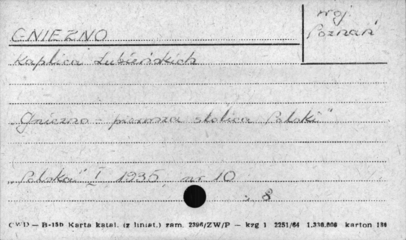 woj.
Poznań
GNIEZNO
Kaplica Łubieńskich
"Gniezno - pierwsza stolica Polski"
"Polska" I 1935, nr 10
s. 8
CWD — B-15b Karta katal. (z liniat.) zam. 2396/ZW/P — krg 1 2251/64 1.330.000 karton 180